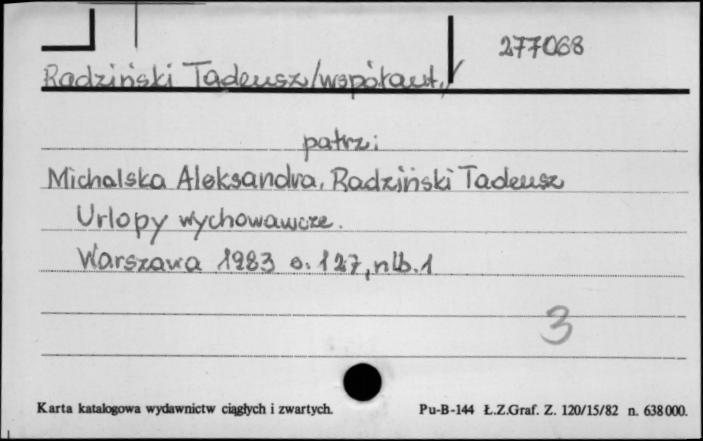 277068
Radziński Tadeusz/współaut./
patrz:
Michalska Aleksandra, Radziński Tadeusz
Urlopy wychowawcze.
Warszawa 1983 s. 127, nlb. 1
3
Karta katalogowa wydawnictw ciągłych i zwartych. Pu-B-144 Ł.Z.Graf. Z. 120/15/82 n. 638000.